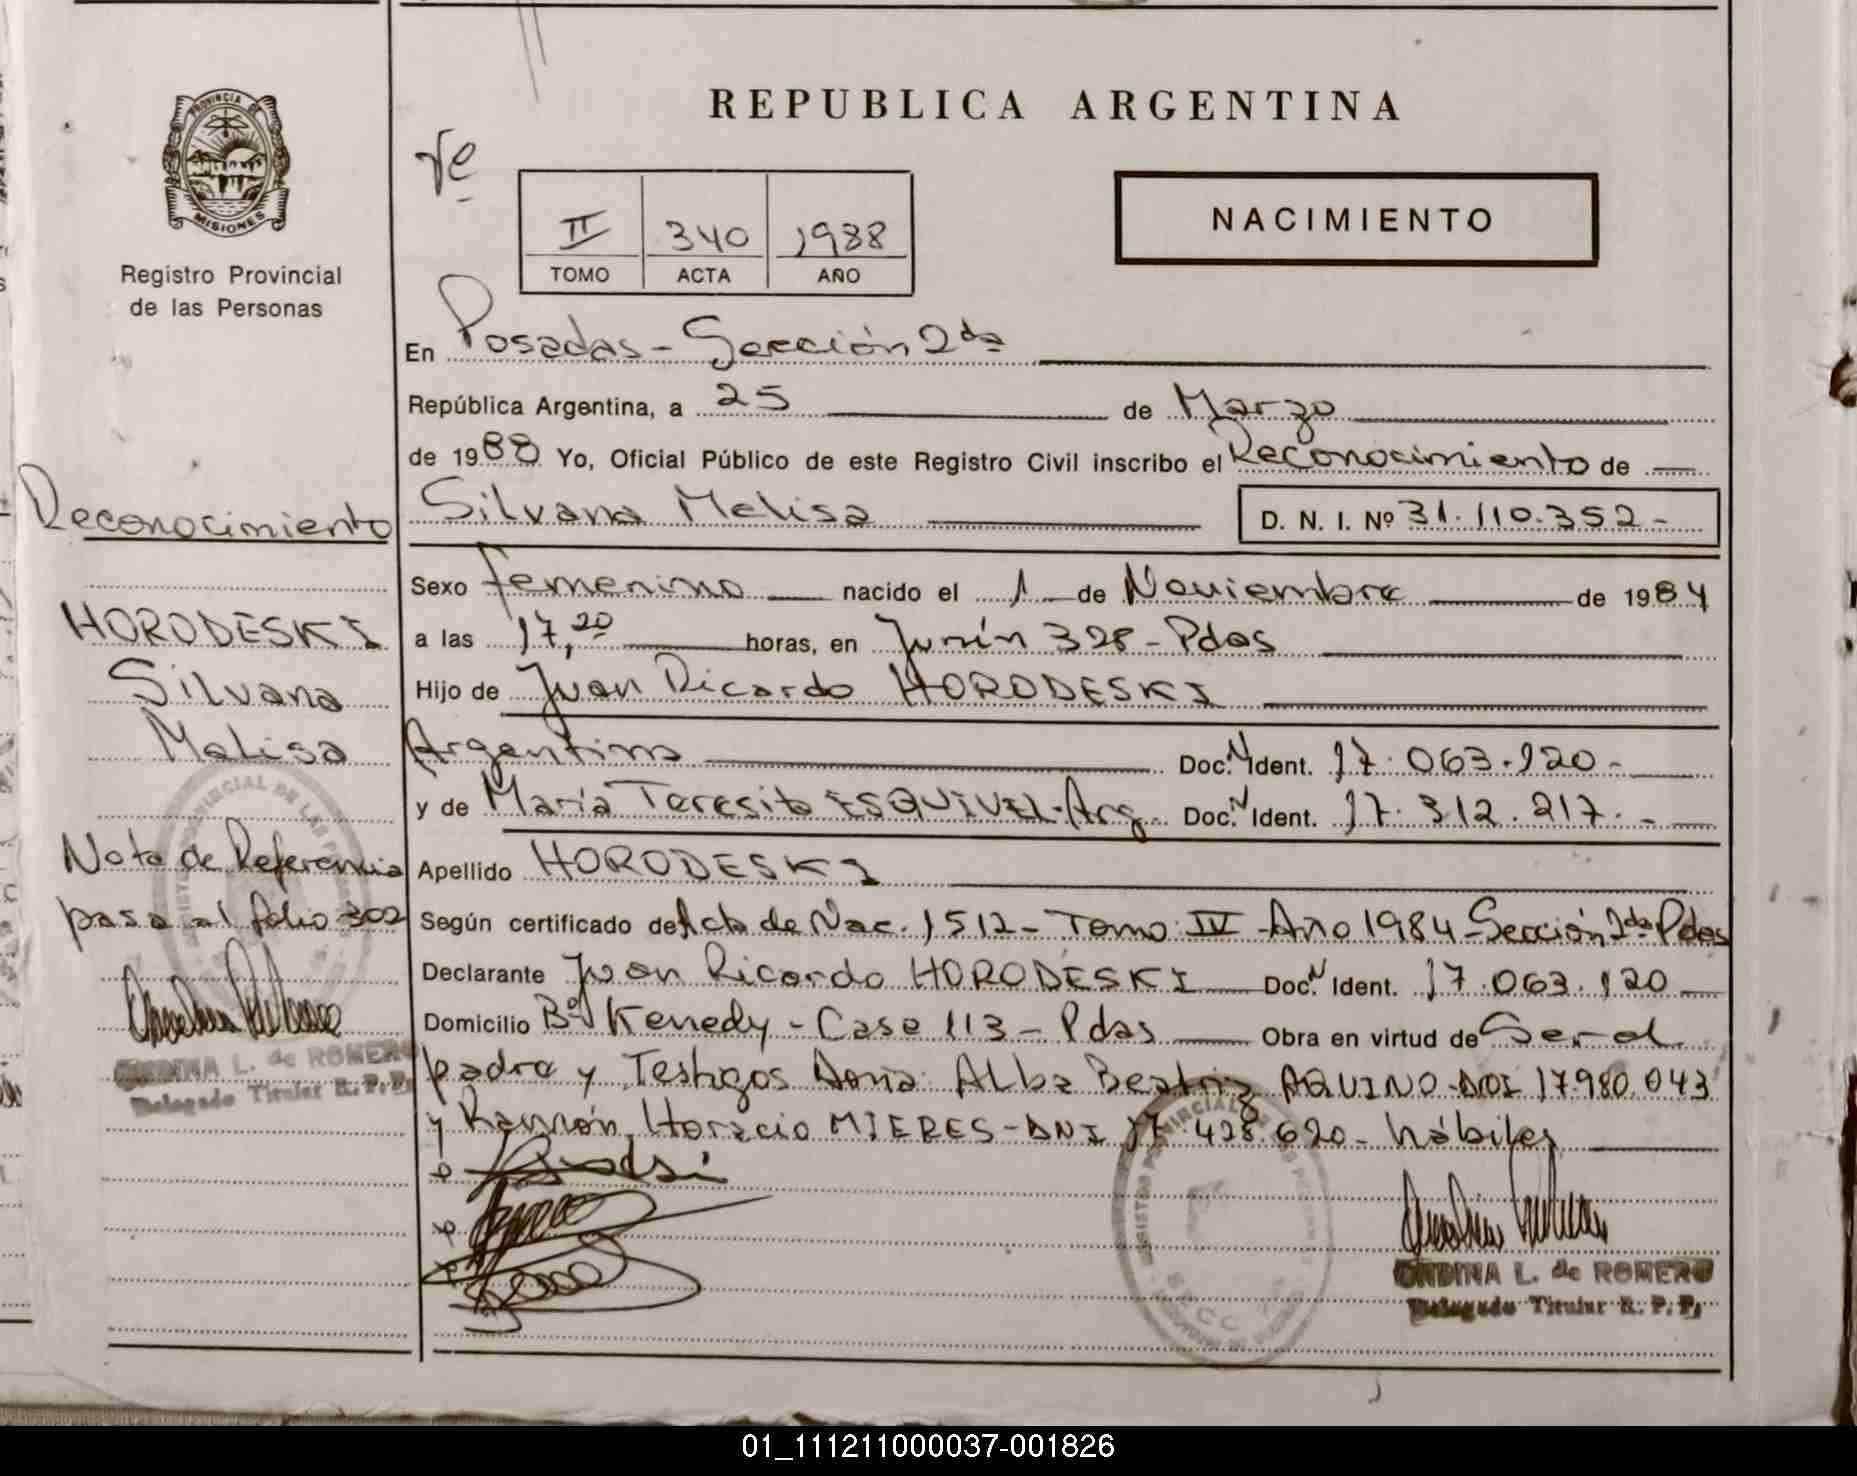 REPUBLICA ARGENTINA
PROVINCIA DE
MISIONES
Registro Provincial
de las Personas
II 340 1988
TOMO ACTA AÑO
NACIMIENTO
En Posadas - Sección 2da
República Argentina, a 25 de Marzo
de 1988 Yo, Oficial Público de este Registro Civil inscribo el Reconocimiento de
Silvana Melisa D. N. I. Nº 31.110.352-
Sexo femenino nacido el 1 de Noviembre de 1984
a las 17,20 horas, en Junín 328 - Pdas
Hijo de Juan Ricardo HORODESKI
Argentino Doc. N Ident. 17.063.120-
y de María Teresita ESQUIVEL-Arg. Doc. N Ident. 17.312.217.-
Apellido HORODESKI
Según certificado de Acta de Nac. 1512 - Tomo IV - Año 1984 - Sección 2da Pdas
Declarante Juan Ricardo HORODESKI Doc. N Ident. 17.063.120
Domicilio Bº Kenedy - Case 113 - Pdas Obra en virtud de Ser el
padre y Testigos Alba Beatriz AQUINO - DNI 17.980.043
y Ramón Horacio MIERES - DNI 17.428.620 - hábiles
ONDINA L. de ROMERO
Delegado Titular R. P. P.
Reconocimiento
HORODESKI
Silvana
Melisa
Nota de Referencia
pasa al folio 302
ONDINA L. de ROMERO
Delegado Titular R. P. P.
01_111211000037-001826